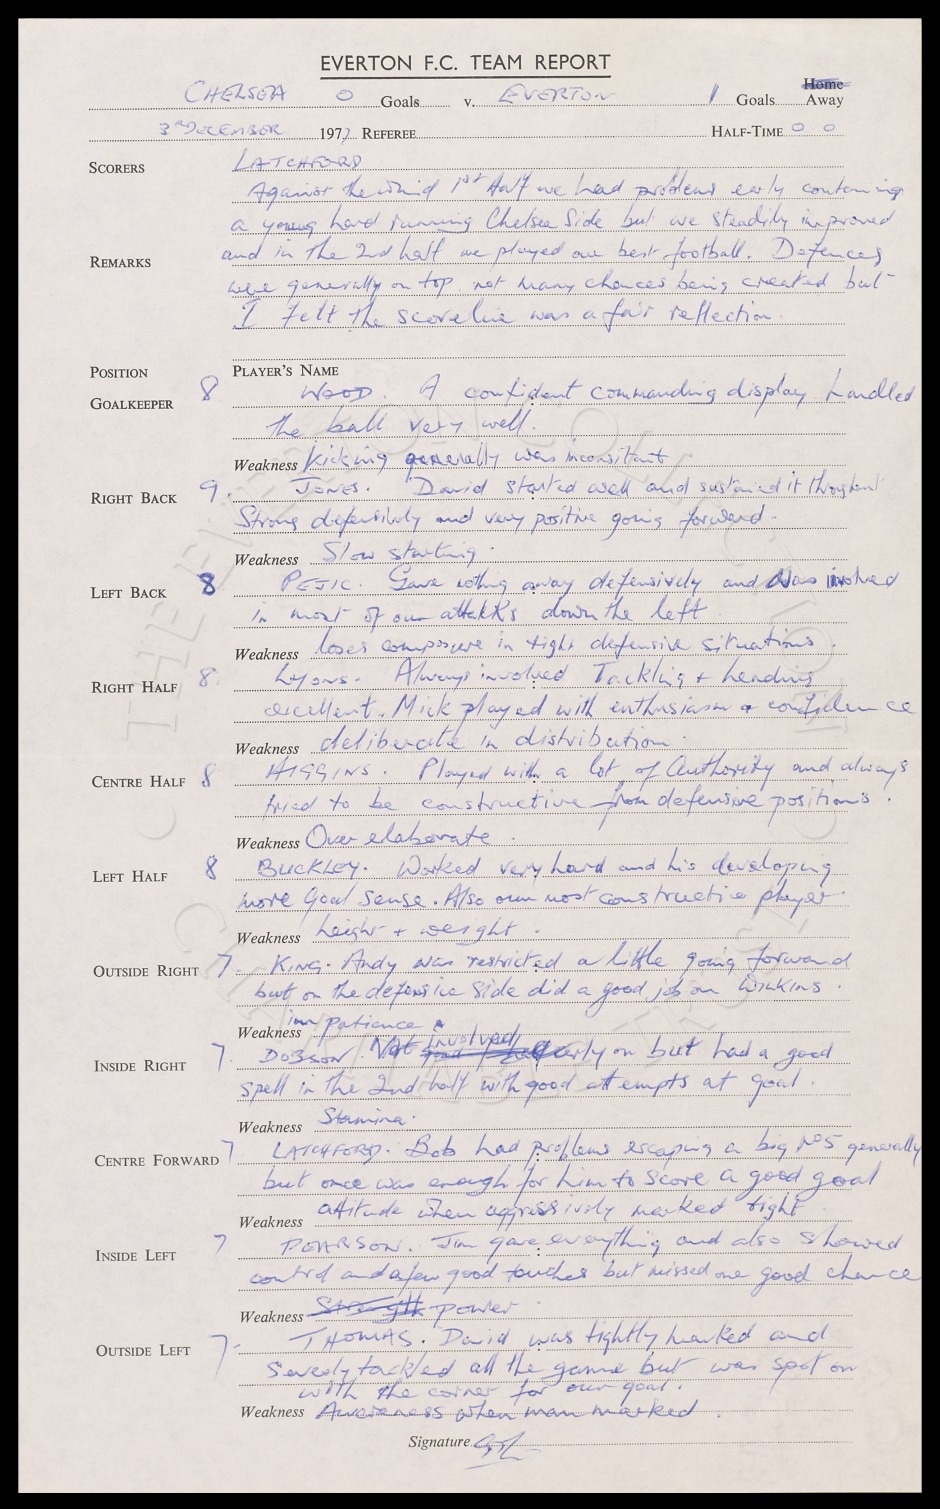 EVERTON F.C. TEAM REPORT
Home
CHELSEA 0 Goals v. EVERTON 1 Goals Away
3RD DECEMBER 1977 REFEREE HALF-TIME 0 0
SCORERS LATCHFORD
Against the whind 1st Half we had problems early containing
a young hard running Chelsea Side but we steadily improved
and in the 2nd half we played our best football. Defences
REMARKS
were generally on top not many chances being created but
I felt the scoreline was a fair reflection.
POSITION PLAYER'S NAME
GOALKEEPER 8 WOOD. A confident commanding display handled
the ball very well.
Weakness Kicking generally was inconsitant
RIGHT BACK 9. JONES. David started well and sustained it throughout
Strong defensively and very positive going forward.
Weakness Slow starting.
LEFT BACK 8 PEJIC. Gave nothing away defensively and was involved
in most of our attakks down the left
Weakness loses composure in tight defensive situations.
RIGHT HALF 8. Lyons. Always involved Tackling + heading
excellent. Mick played with enthusiasm + confidence
Weakness deliberate in distribution.
CENTRE HALF 8 HIGGINS. Played with a lot of Authority and always
tried to be constructive from defensive positions.
Weakness Over elaborate.
LEFT HALF 8 BUCKLEY. Worked very hard and his developing
more Goal sense. Also our most constructive player.
Weakness height + weight.
OUTSIDE RIGHT 7- KING. Andy was restricted a little going forward
but on the defensive side did a good job on Wilkins.
Weakness impatience
INSIDE RIGHT 7. DOBSON Not involved early on but had a good
spell in the 2nd half with good attempts at goal.
Weakness Stamina.
CENTRE FORWARD 7. LATCHFORD. Bob had problems escaping a big No5 generally
but once was enough for him to score a good goal
Weakness attitude when aggressively marked tight
INSIDE LEFT 7 PEARSON. Jim gave everything and also showed
control and a few good touches but missed one good chance
Weakness Strength power.
OUTSIDE LEFT 7- THOMAS. David was tightly marked and
severly tackled all the game but was spot on
with the corner for our goal.
Weakness Awareness when man marked.
Signature